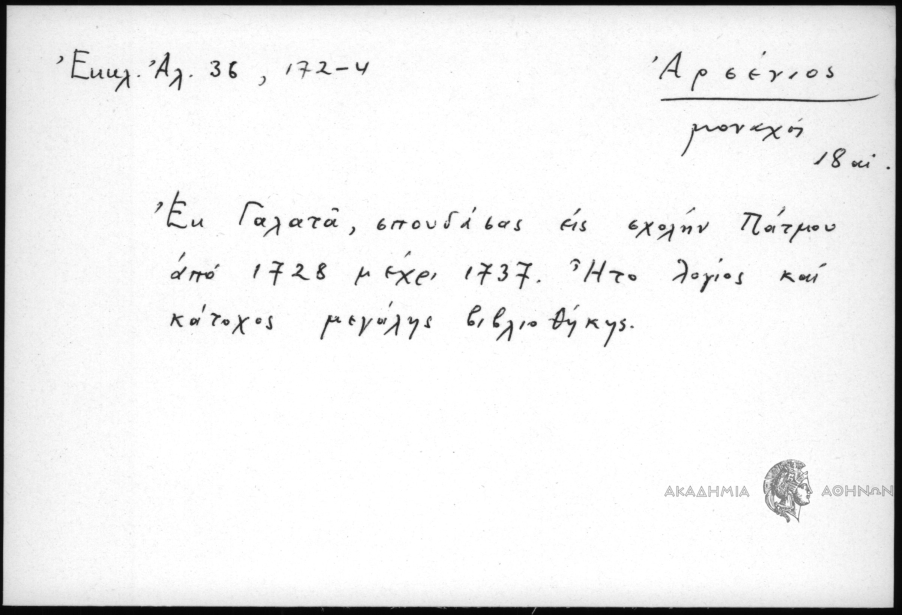 Ἐκκλ. Ἀλ. 36, 172-4
Ἀρσένιος
μοναχός
18 αἰ.
Ἐκ Γαλατᾶ, σπουδάσας εἰς σχολήν Πάτμου
ἀπό 1728 μέχρι 1737. Ἦτο λογίος καί
κάτοχος μεγάλης βιβλιοθήκης.
ΑΚΑΔΗΜΙΑ ΑΘΗΝΩΝ